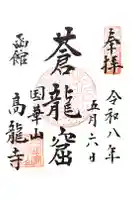 奉拝
令和八年
五月六日
蒼龍窟
函館
国華山
高龍寺